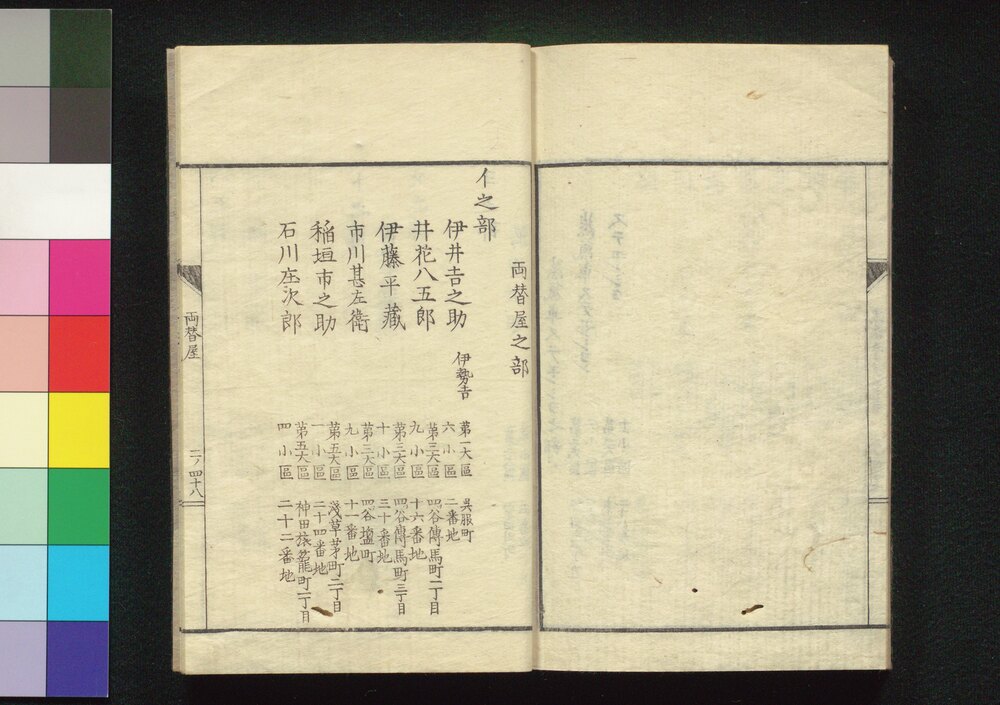 両替屋之部
イ之部
伊井𠮷之助 伊勢𠮷 第一大區六小區 呉服町二番地
井花八五郎 第三大區九小區 四谷傳馬町一丁目十六番地
伊藤平藏 第三大區十小區 四谷傳馬町三丁目三十番地
市川甚左衛 第三大區九小區 四谷塩町十一番地
稲垣市之助 第五大區一小區 淺草茅町二丁目二十四番地
石川庄次郎 第五大區四小區 神田旅籠町一丁目二十二番地
両替屋
二ノ四十八